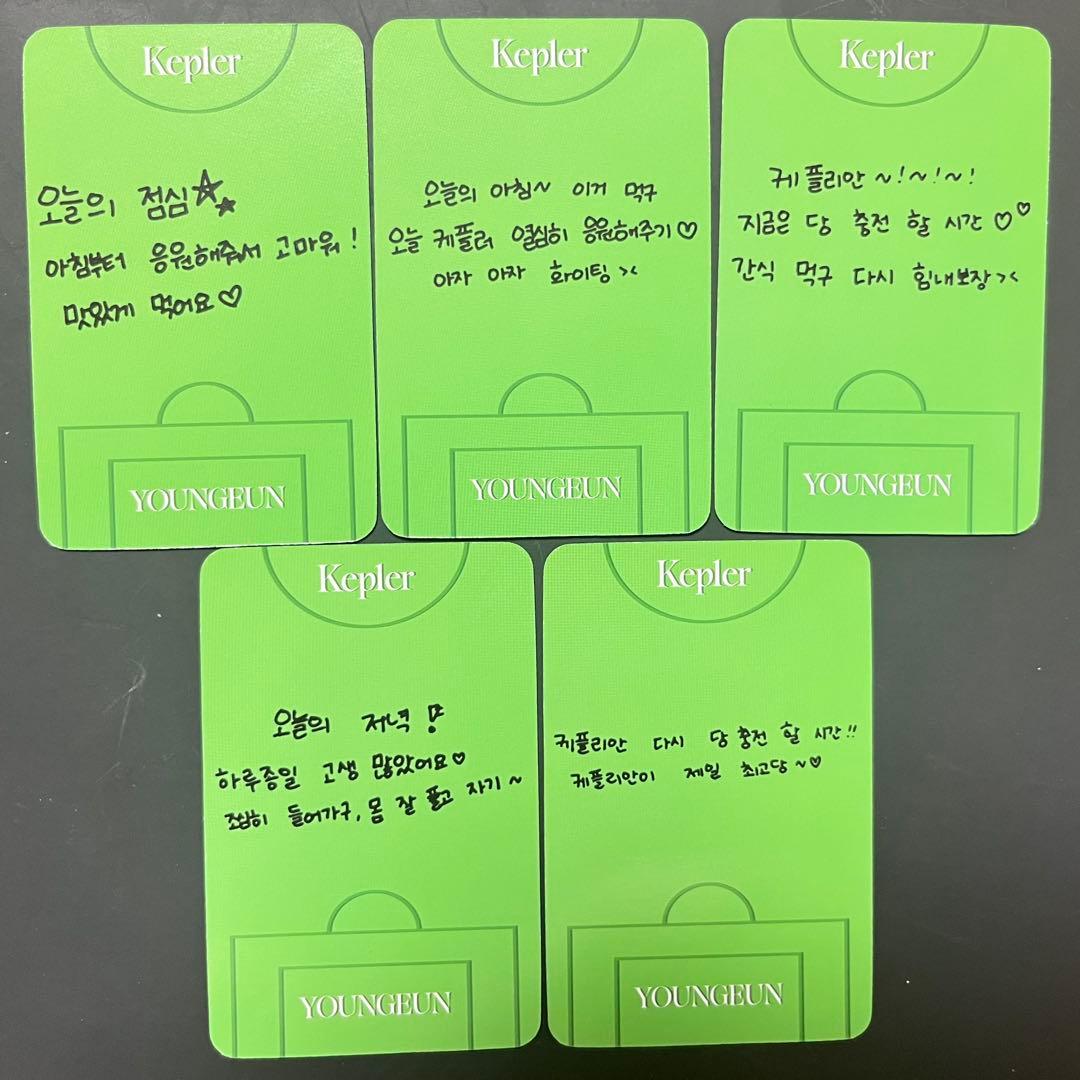 Kepler
오늘의 점심☆☆
아침부터 응원해줘서 고마워!
맛있게 먹어요♡
YOUNGEUN
Kepler
오늘의 아침~ 이거 먹구
오늘 케플러 열심히 응원해주기♡
아자 아자 화이팅 ><
YOUNGEUN
Kepler
케플리안~!~!~!
지금은 당 충전 할 시간♡♡
간식 먹구 다시 힘내보장><
YOUNGEUN
Kepler
오늘의 저녁!
하루종일 고생 많았어요♡
조심히 들어가구, 몸 잘 풀고 자기~
YOUNGEUN
Kepler
케플리안 다시 당 충전 할 시간!!
케플리안이 제일 최고당~♡
YOUNGEUN